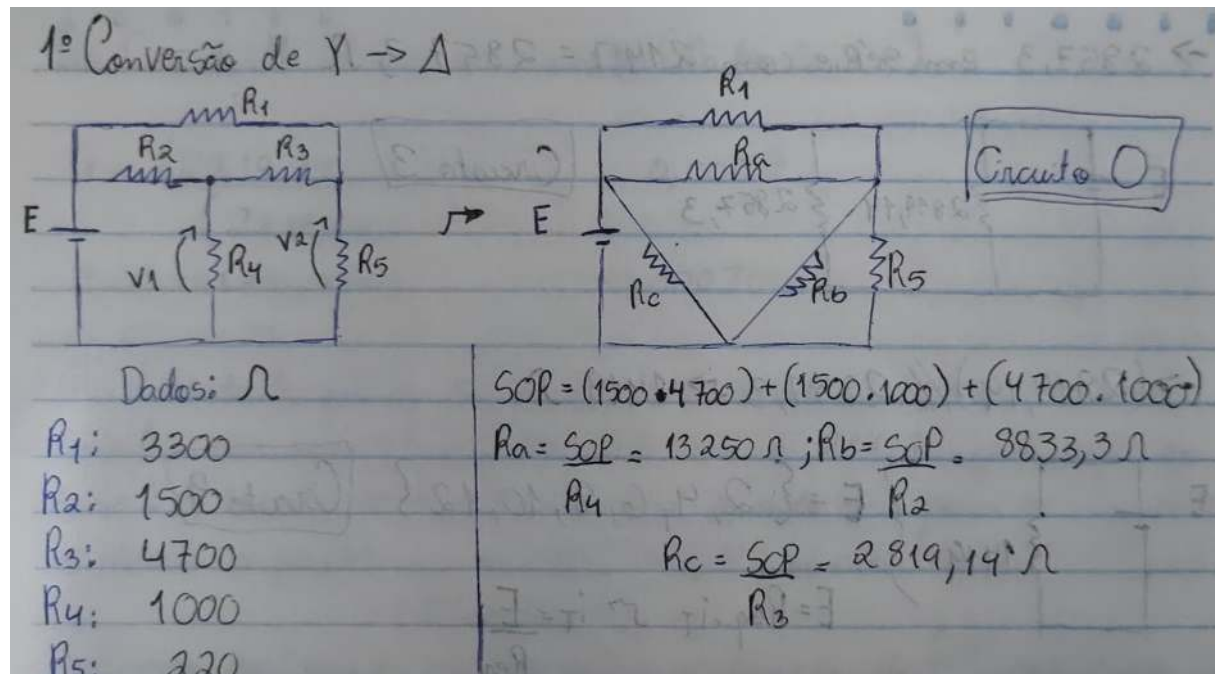 1º Conversão de Y → Δ
R1
R2 R3
E
V1 R4 V2 R5
R1
Ra
E
Rc Rb R5
Circuito 0
Dados: Ω
R1: 3300
R2: 1500
R3: 4700
R4: 1000
R5: 220
SOP = (1500.4700) + (1500.1000) + (4700.1000)
Ra = SOP = 13250 Ω ; Rb = SOP = 8833,3 Ω
R4 R2
Rc = SOP = 2819,14 Ω
R3